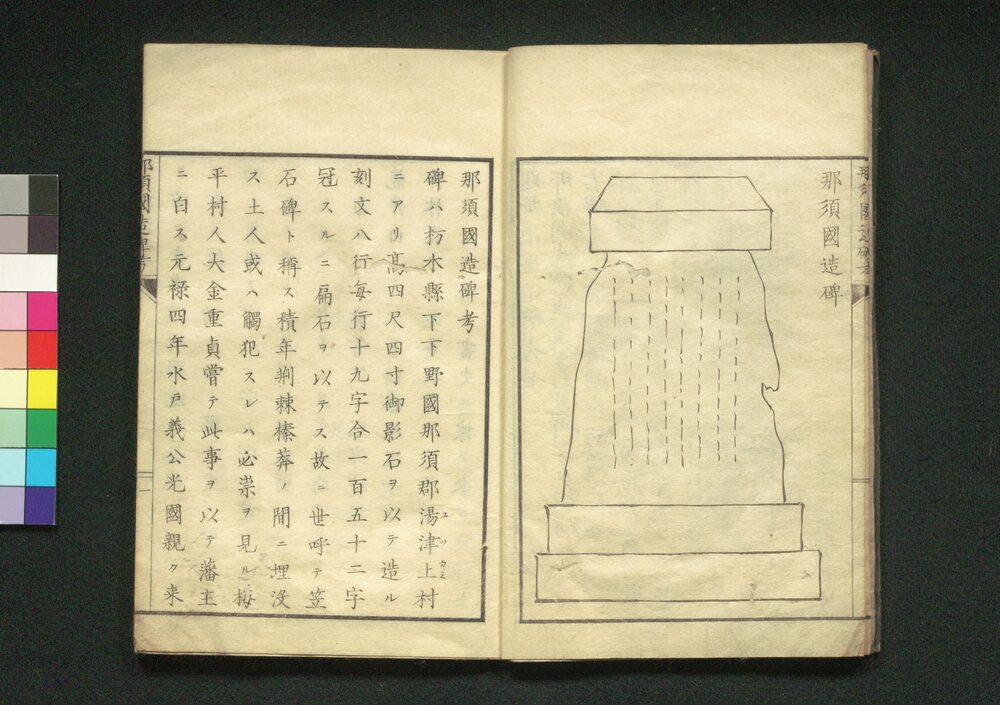 那須國造碑
那須國造碑考
碑ハ栃木縣下下野國那須郡湯津上村
ユツカミ
ニアリ高四尺四寸御影石ヲ以テ造ル
刻文八行每行十九字合一百五十二字
冠スルニ扁石ヲ以テス故ニ世呼テ笠
石碑ト稱ス積年荆棘榛莽ノ間ニ埋没
ス土人或ハ觸犯スレハ必祟ヲ見ル梅
平村人大金重貞嘗テ此事ヲ以テ藩主
ニ白ス元禄四年水戸義公光國親ク来
那須國造碑考
一